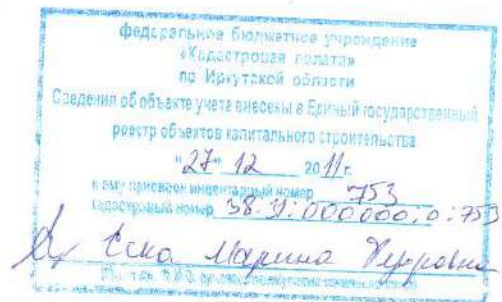 федеральное бюджетное учреждение
«Кадастровая палата»
по Иркутской области
Сведения об объекте учета внесены в Единый государственный
реестр объектов капитального строительства
"27" 12 2011 г.
и ему присвоен инвентарный номер 753
кадастровый номер 38:31:000000:0:753
Марина